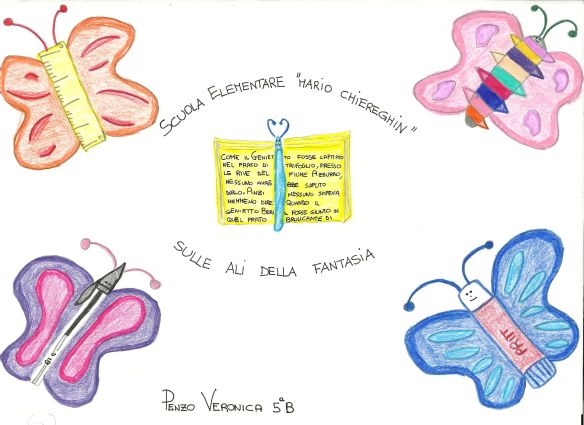 SCUOLA ELEMENTARE "MARIO CHIEREGHIN"
COME IL GENIETTO FOSSE CAPITATO
NEL PRATO DI TRIFOGLIO, PRESSO
LE RIVE DEL FIUME AZZURRO,
NESSUNO AVREBBE SAPUTO
DIRLO. ANZI NESSUNO SAPEVA
NEMMENO DIRE QUANDO IL
GENIETTO BERE FOSSE GIUNTO IN
QUEL PRATO BRULICANTE DI
SULLE ALI DELLA FANTASIA
PRITT
PENZO VERONICA 5ªB